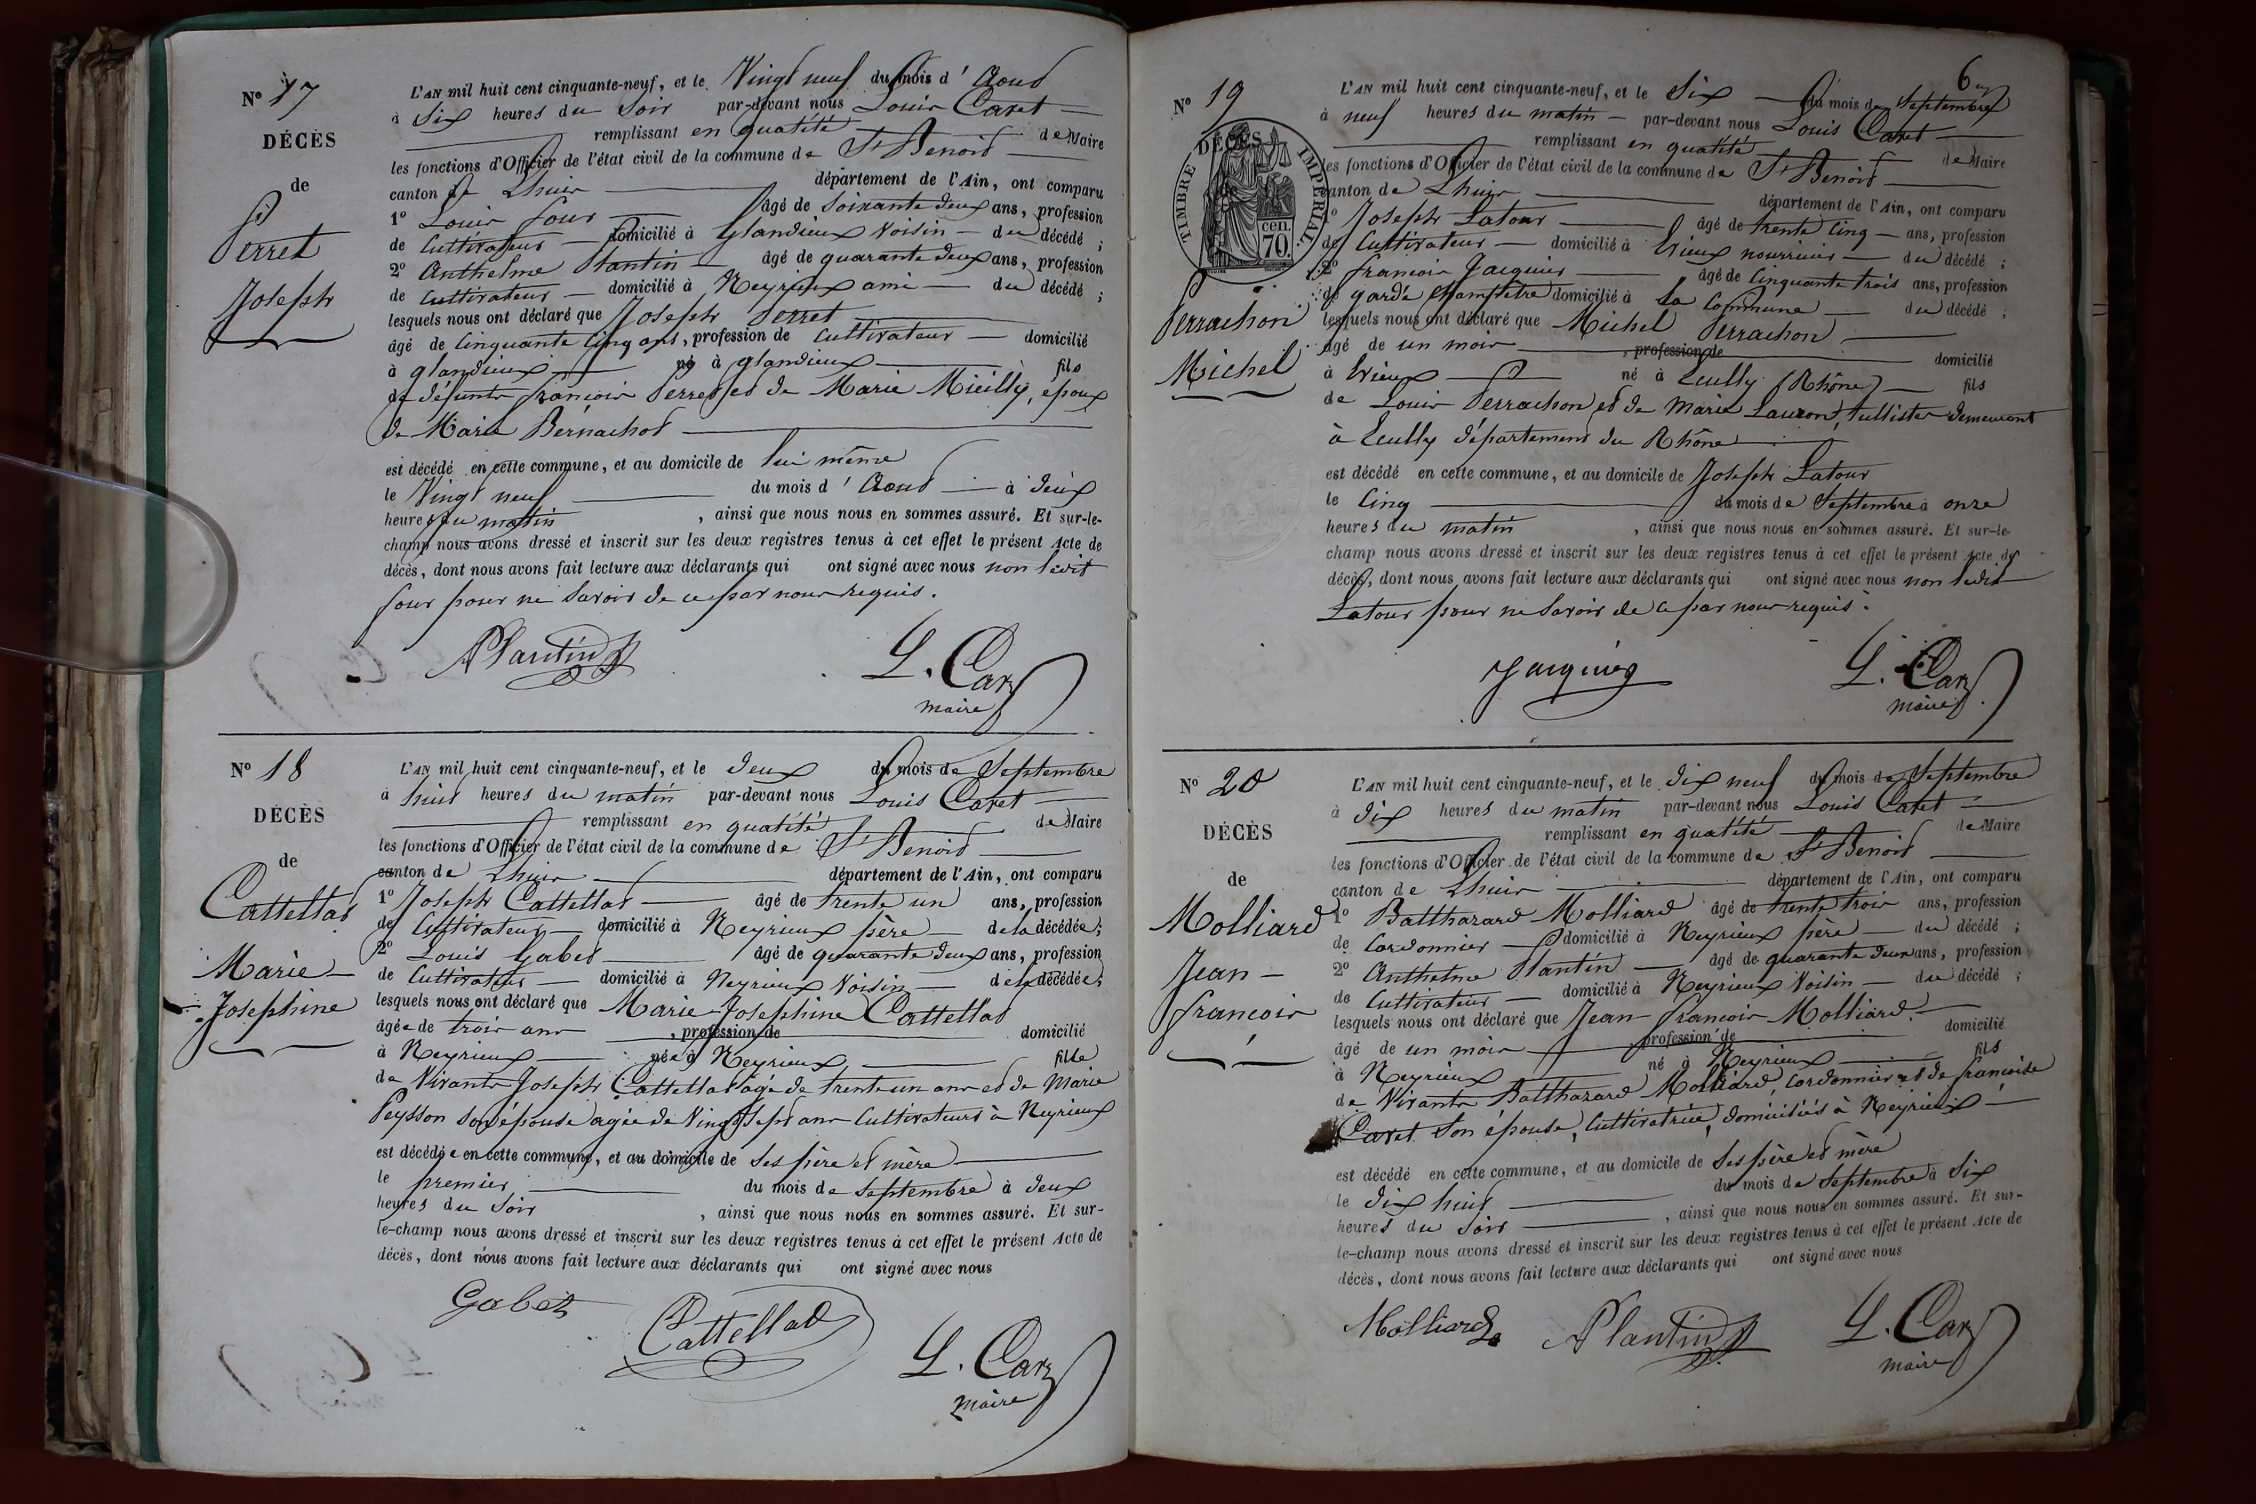 N° 17
DÉCÈS
de
Perret
Joseph
L'AN mil huit cent cinquante-neuf, et le Vingt neuf du mois d' Aout
à Six heures du Soir par-devant nous Louis Caret
remplissant en qualité de Maire
les fonctions d'Officier de l'état civil de la commune de St Benoit
canton de Lhuis département de l'Ain, ont comparu
1° Louis four âgé de Soixante deux ans, profession
de Cultivateur domicilié à Glandieux Voisin du décédé ;
2° Anthelme Plantin âgé de quarante deux ans, profession
de Cultivateur domicilié à Neyrieux ami du décédé ;
lesquels nous ont déclaré que Joseph Perret
âgé de Cinquante Cinq ans, profession de Cultivateur domicilié
à glandieux né à glandieux fils
de défunts françois Perret et de Marie Mieilly, époux
de Marie Bernachot
est décédé en cette commune, et au domicile de lui même
le Vingt neuf du mois d' Aout à deux
heures du matin, ainsi que nous nous en sommes assuré. Et sur-le-
champ nous avons dressé et inscrit sur les deux registres tenus à cet effet le présent Acte de
décès, dont nous avons fait lecture aux déclarants qui ont signé avec nous non ledit
four pour ne Savoir de ce par nous requis.
APlantin
L. Caret
maire
N° 18
DÉCÈS
de
Cattellat
Marie
Josephine
L'AN mil huit cent cinquante-neuf, et le deux du mois de Septembre
à huit heures du matin par-devant nous Louis Caret
remplissant en qualité de Maire
les fonctions d'Officier de l'état civil de la commune de St Benoit
canton de Lhuis département de l'Ain, ont comparu
1° Joseph Cattellat âgé de trente un ans, profession
de Cultivateur domicilié à Neyrieux père de la décédée ;
2° Louis Gabet âgé de quarante deux ans, profession
de Cultivateur domicilié à Neyrieux Voisin de la décédée ;
lesquels nous ont déclaré que Marie Josephine Cattellat
âgée de trois ans, profession de domicilié
à Neyrieux née à Neyrieux fille
de Vivants Joseph Cattellat âgé de trente un ans et de Marie
Peysson son épouse agée de Vingt Sept ans Cultivateurs à Neyrieux
est décédée en cette commune, et au domicile de Ses père et mère
le premier du mois de Septembre à deux
heures du Soir, ainsi que nous nous en sommes assuré. Et sur-
le-champ nous avons dressé et inscrit sur les deux registres tenus à cet effet le présent Acte de
décès, dont nous avons fait lecture aux déclarants qui ont signé avec nous
Gabet
Cattellat
L. Caret
maire
6
N° 19
DÉCÈS
de
TIMBRE IMPÉRIAL.
cen.
70.
Perrachon
Michel
L'AN mil huit cent cinquante-neuf, et le Six du mois de Septembre
à neuf heures du matin par-devant nous Louis Caret
remplissant en qualité de Maire
les fonctions d'Officier de l'état civil de la commune de St Benoit
canton de Lhuis département de l'Ain, ont comparu
1° Joseph Latour âgé de trente Cinq ans, profession
de Cultivateur domicilié à Evieux nourricier du décédé ;
2° françois Jacquier âgé de Cinquante trois ans, profession
de garde champêtre domicilié à La Commune du décédé ;
lesquels nous ont déclaré que Michel Perrachon
âgé de un mois, profession de domicilié
à Evieux né à Ecully (Rhône) fils
de Louis Perrachon et de Marie Lauzon, tullistes demeurant
à Ecully département du Rhône
est décédé en cette commune, et au domicile de Joseph Latour
le Cinq du mois de Septembre à onze
heures du matin, ainsi que nous nous en sommes assuré. Et sur-le-
champ nous avons dressé et inscrit sur les deux registres tenus à cet effet le présent Acte de
décès, dont nous avons fait lecture aux déclarants qui ont signé avec nous non ledit
Latour pour ne Savoir de ce par nous requis.
Jacquier
L. Caret
maire
N° 20
DÉCÈS
de
Molliard
Jean
françois
L'AN mil huit cent cinquante-neuf, et le dix neuf du mois de Septembre
à dix heures du matin par-devant nous Louis Caret
remplissant en qualité de Maire
les fonctions d'Officier de l'état civil de la commune de St Benoit
canton de Lhuis département de l'Ain, ont comparu
1° Balthazard Molliard âgé de trente trois ans, profession
de Cordonnier domicilié à Neyrieux père du décédé ;
2° Anthelme Plantin âgé de quarante deux ans, profession
de Cultivateur domicilié à Neyrieux Voisin du décédé ;
lesquels nous ont déclaré que Jean françois Molliard
âgé de un mois profession de domicilié
à Neyrieux né à Neyrieux fils
de Vivants Balthazard Molliard, Cordonnier et de françoise
Caret Son épouse, Cultivatrice, domiciliés à Neyrieux
est décédé en cette commune, et au domicile de Ses père et mère
le dix huit du mois de Septembre à Six
heures du Soir, ainsi que nous nous en sommes assuré. Et sur-
le-champ nous avons dressé et inscrit sur les deux registres tenus à cet effet le présent Acte de
décès, dont nous avons fait lecture aux déclarants qui ont signé avec nous
Molliard
APlantin
L. Caret
maire